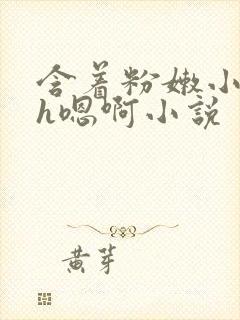 含着粉嫩小
h嗯啊小说
黄芽